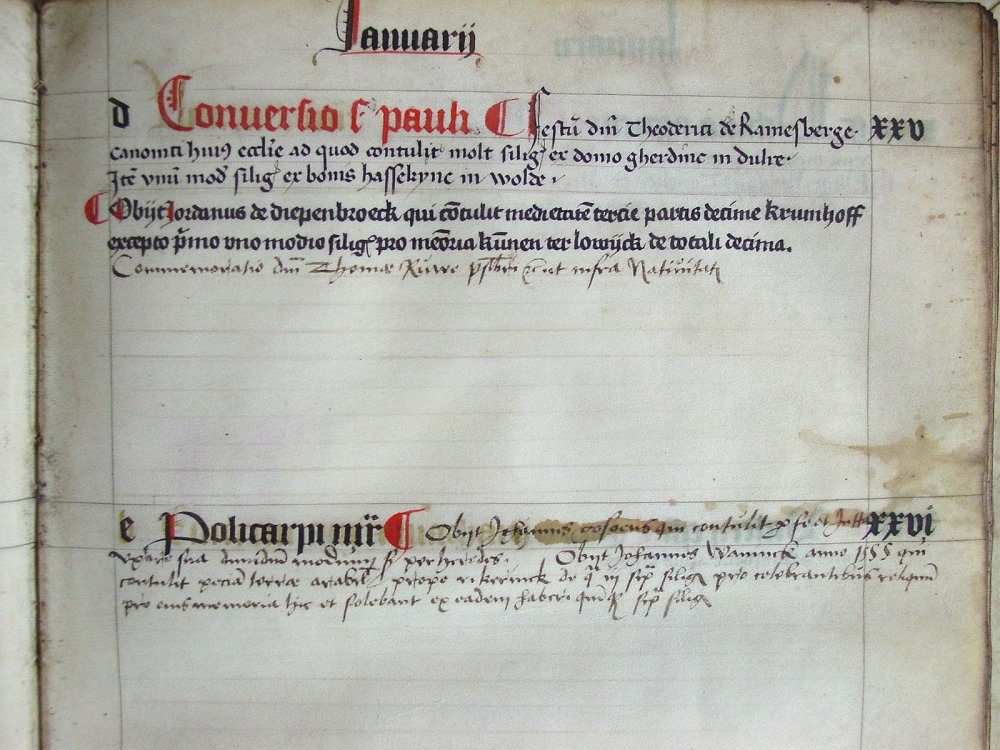 Januarij
d Conversio s pauli festū dm̄ Theoderici de Ramesberge xxv
canonici huiꝰ eccl̄ie ad quod contulit molt silig̓ ex domo gherdinc in dulre
Itē vnū mod̓ silig̓ ex bonis hassekync in wolde
Obijt Jordanus de diepenbroeck qui cōtulit medietatē tercie partis decime krumhoff
excepto p̄mo vno modio silig̓ pro meōria kūnen ter lowijck de totali decima.
Commemoratio dm̄ Thomae Ruwe pr̄sbri ut infra Nativitat
e Policarpi mr̄ Obijt Johannes qui contulit xxvi
vxore sua dimidium modium per heredes. Obijt Johannes Wannick anno 1555 qui
contulit peciam terrae arabil̄ prope rikerinck de silig̓ pro celebrantibus reliquū
pro eius memoria hic et solebant ex eadem haberi silig̓